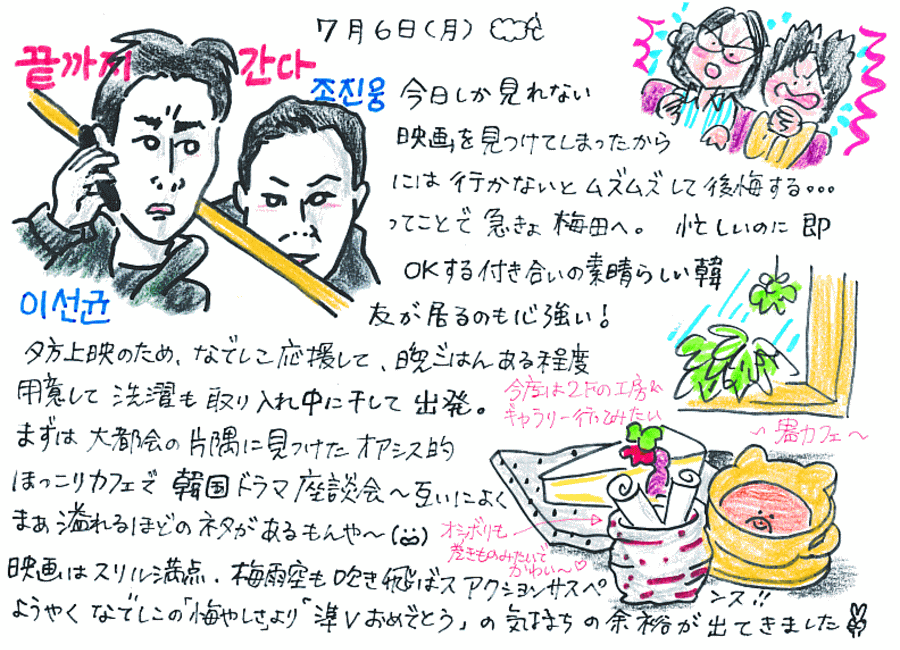 7月6日(月)
끝까지 간다
조진웅
이선균
今日しか見れない
映画を見つけてしまったから
には行かないとムズムズして後悔する…
ってことで急きょ梅田へ。忙しいのに即
OKする付き合いの素晴らしい韓
友が居るのも心強い!
夕方上映のため、なでしこ応援して、晩ごはんある程度
用意して洗濯も取り入れ中に干して出発。
まずは大都会の片隅に見つけたオアシス的
ほっこりカフェで韓国ドラマ座談会〜互いによく
まぁ溢れるほどのネタがあるもんや〜
映画はスリル満点.梅雨空も吹き飛ばスアクションサスペンス!!
ようやくなでしこの「悔やしさ」より「準Vおめでとう」の気もちの余裕が出てきました
今度は2Fの工房&
ギャラリー行ってみたい
〜器カフェ〜
オシボリも
巻きものみたいで
かわい〜♡